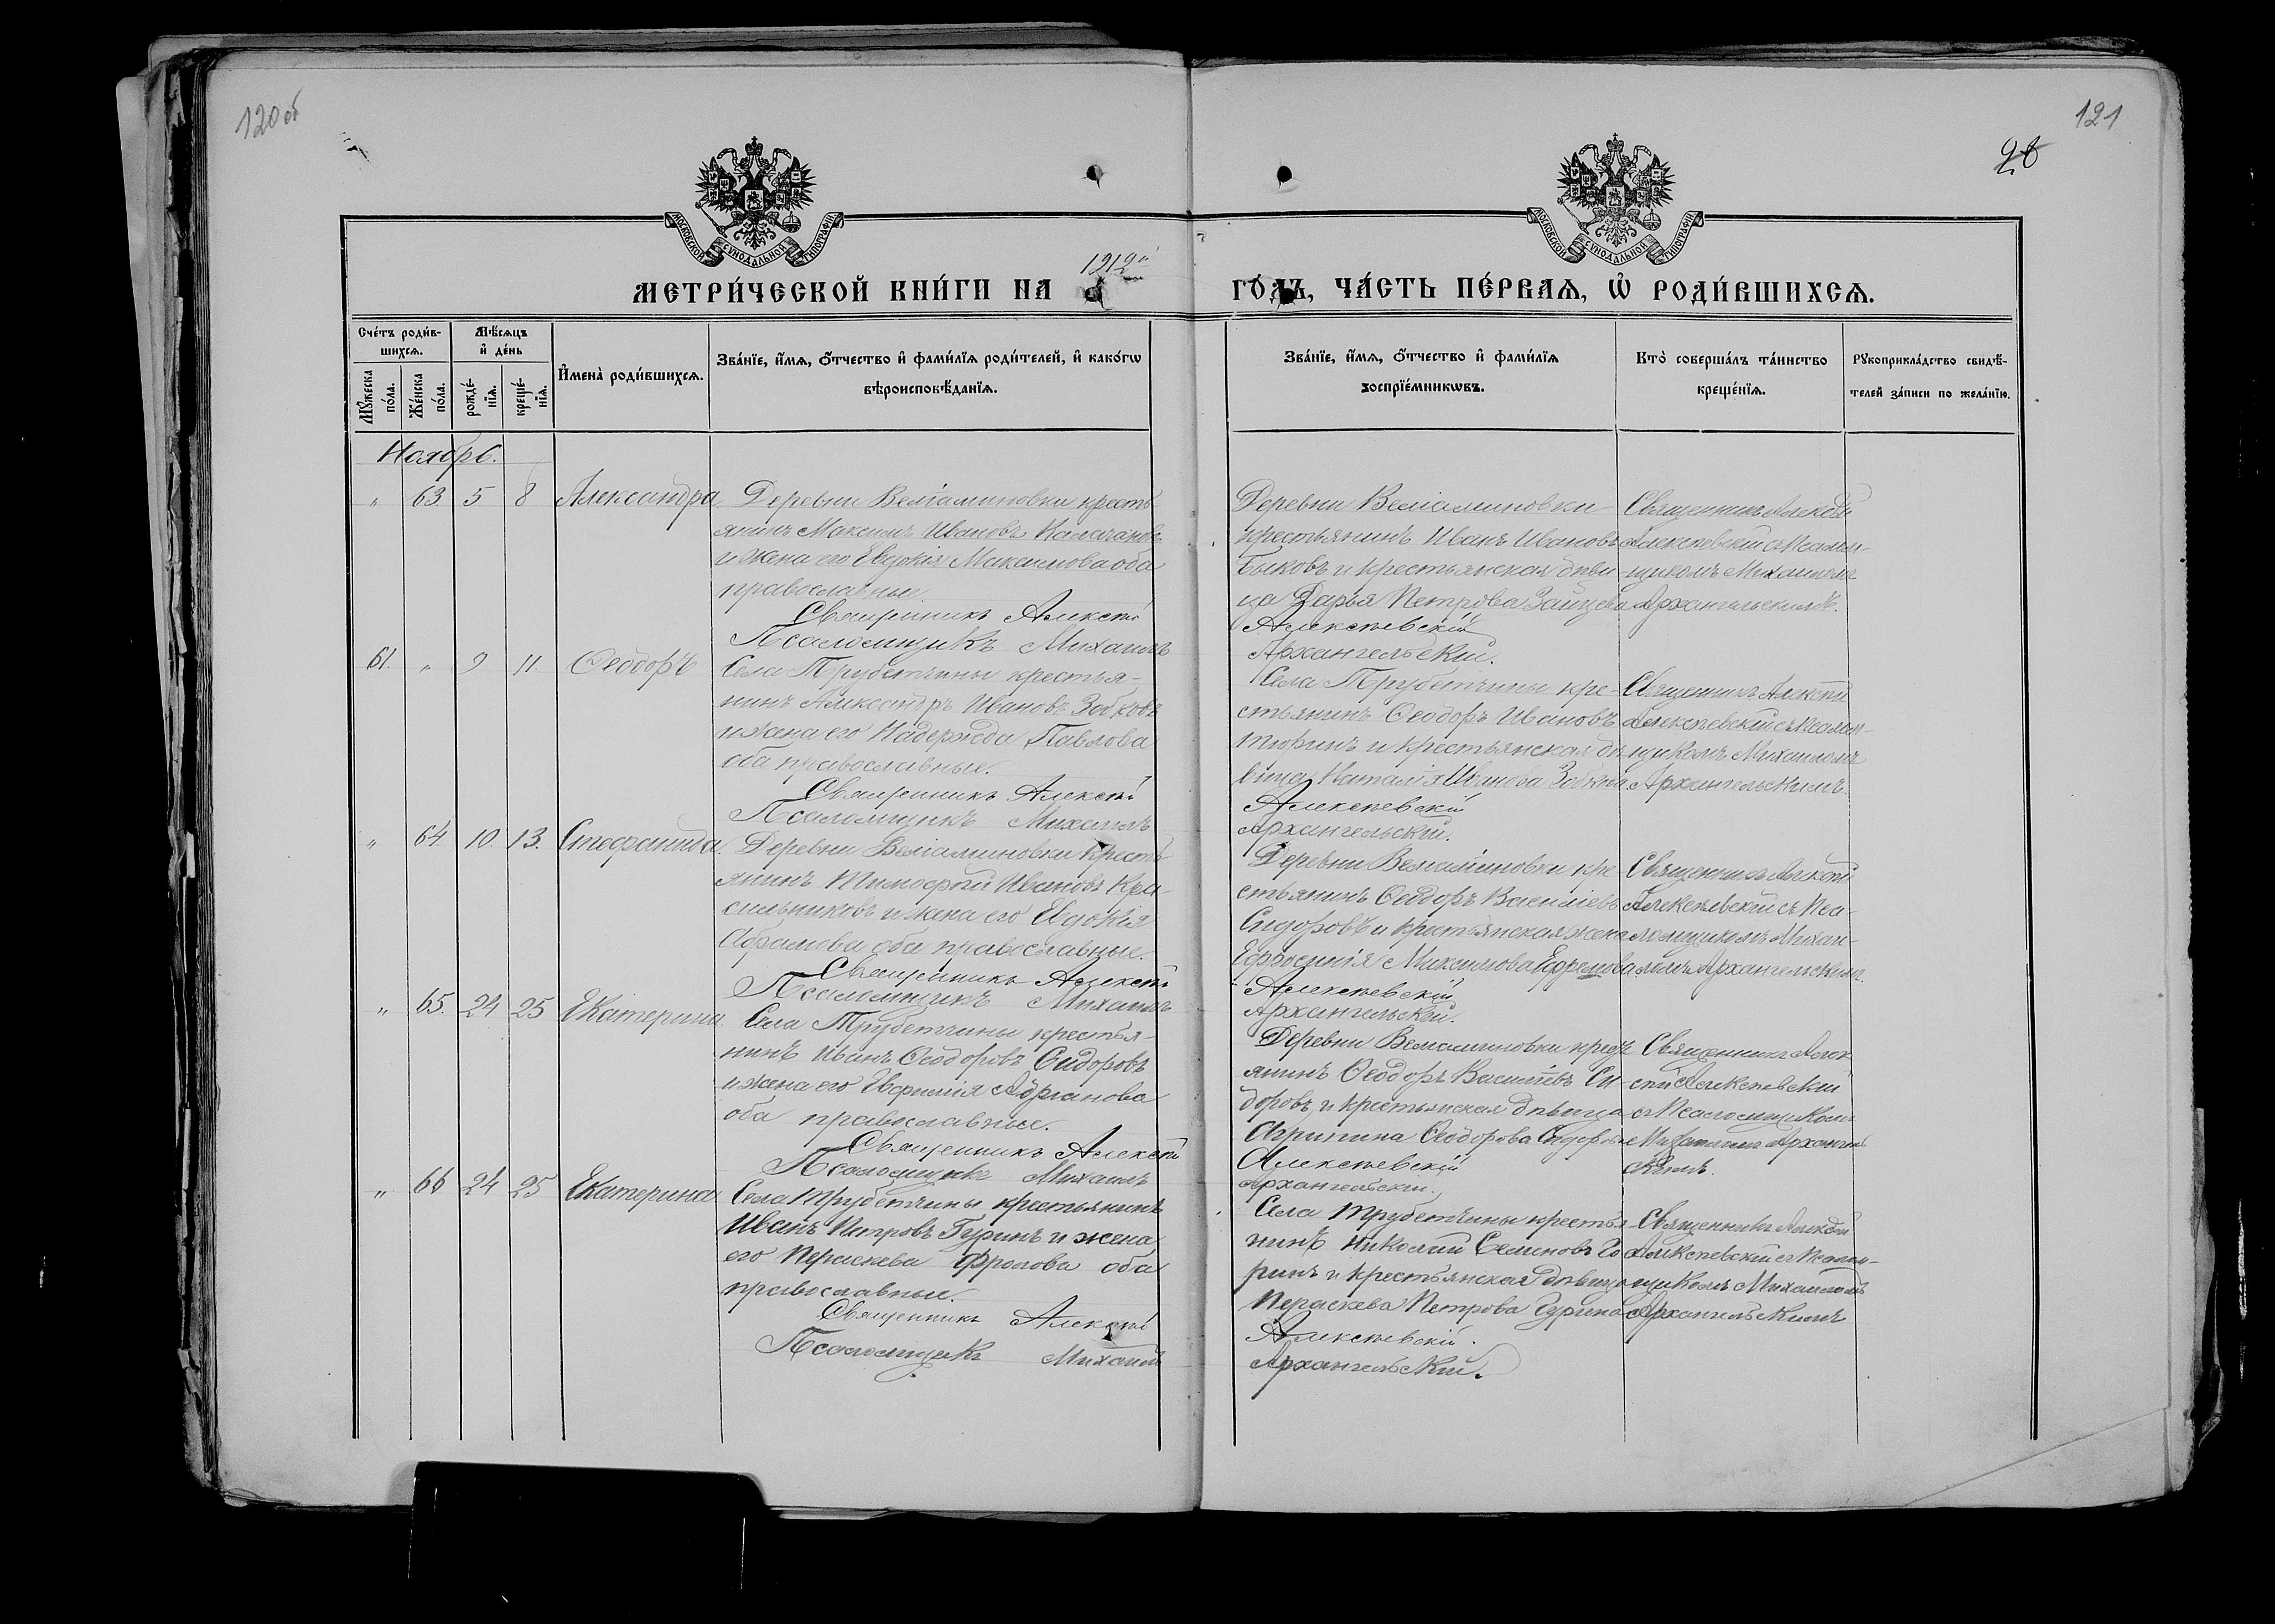 120 об
121
28
МОСКОВСКОЙ СѴНОДАЛЬНОЙ ТИПОГРАФІИ
МОСКОВСКОЙ СѴНОДАЛЬНОЙ ТИПОГРАФІИ
1912й
МЕТРИ́ЧЕСКОЙ КНИ́ГИ НА
ГО́ДЪ, ЧА́СТЬ ПЕ́РВАѦ, Ѡ҆ РОДИ́ВШИХСѦ.
Сче́тъ роди́в-
шихсѧ.
Мꙋ́жеска по́ла.
Же́нска по́ла.
Мѣ́сѧцъ
и҆ де́нь
рожде́-
нїѧ.
креще́-
нїѧ.
И҆мена̀ роди́вшихсѧ.
Зва́нїе, и҆́мѧ, ѻ҆́тчество и҆ фами́лїѧ роди́телей, и҆ како́гѡ
вѣроисповѣ́данїѧ.
Зва́нїе, и҆́мѧ, ѻ҆́тчество и҆ фами́лїѧ
воспрїе́мникѡвъ.
Кто̀ соверша́лъ та́инство
креще́нїѧ.
Рꙋкоприкла́дство свидѣ́-
телей за́писи по жела́нїю.
Ноябрь.
„ 63. 5 8 Александра
Деревни Веліаминовки кресть-
янинъ Максимъ Ивановъ
и жена его Евдокія Максимова оба
православные.
Священникъ Алексѣй
Псаломщикъ Михаилъ
Деревни Веліаминовки
крестьянинъ Иванъ Ивановъ
Быковъ и крестьянская дѣви-
ца Дарья Петрова Зайцева
Алексѣевскій
Архангельскій.
Священникъ Алексѣй
Алексѣевскій съ Псалом-
щикомъ Михаиломъ
Архангельскимъ.
61. „ 9 11. Ѳеодоръ
Села Трубетчины крестья-
нинъ Александръ Ивановъ Зобковъ
и жена его Надежда Павлова
оба православные.
Священникъ Алексѣй
Псаломщикъ Михаилъ
Села Трубетчины кре-
стьянинъ Ѳеодоръ Ивановъ
Тюринъ и крестьянская дѣ-
вица Наталія Иванова Зобкова
Алексѣевскій
Архангельскій.
Священникъ Алексѣй
Алексѣевскій съ Псалом-
щикомъ Михаиломъ
Архангельскимъ.
„ 64. 10 13. Стефанида
Деревни Веліаминовки кресть-
янинъ Тимофей Ивановъ Кра-
сильниковъ и жена его Евдокія
Абрамова оба православные.
Священникъ Алексѣй
Псаломщикъ Михаилъ
Деревни Веліаминовки кре-
стьянинъ Ѳеодоръ Василіевъ
Сидоровъ и крестьянская жена
Ефросинія Максимова Ефремова
Алексѣевскій
Архангельскій.
Священникъ Алексѣй
Алексѣевскій съ Пса-
ломщикомъ Михаи-
ломъ Архангельскимъ.
„ 65. 24 25 Екатерина
Села Трубетчины крестья-
нинъ Иванъ Ѳеодоровъ Сидоровъ
и жена его Евфимія Адріанова
оба православные.
Священникъ Алексѣй
Псаломщикъ Михаилъ
Деревни Веліаминовки крест-
янинъ Ѳеодоръ Василіевъ Си-
доровъ и крестьянская дѣвица
Агрипина Ѳеодорова Сидорова
Алексѣевскій
Архангельскій.
Священникъ Алек-
сѣй Алексѣевскій
съ Псаломщикомъ
Михаиломъ Архангель-
скимъ.
„ 66 24 25 Екатерина
Села Трубетчины крестьянинъ
Иванъ Петровъ Гуринъ и жена
его Параскева Фролова оба
православные.
Священникъ Алексѣй
Псаломщикъ Михаилъ
Села Трубетчины крестья-
нинъ Николай Семеновъ
и крестьянская дѣвица
Параскева Петрова Гурина
Алексѣевскій.
Архангельскій.
Священникъ Алексѣй
Алексѣевскій съ Псалом-
щикомъ Михаиломъ
Архангельскимъ